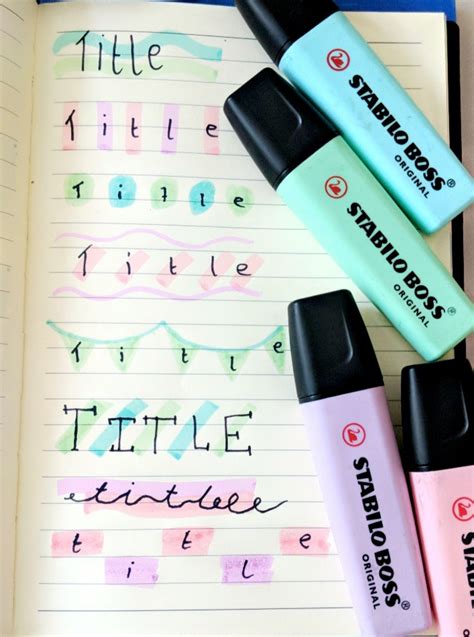 Title
Title
Title
Title
Title
TITLE
title
title
STABILO BOSS
ORIGINAL
STABILO BOSS
ORIGINAL
STABILO BOSS
ORIGINAL
STABILO BOSS